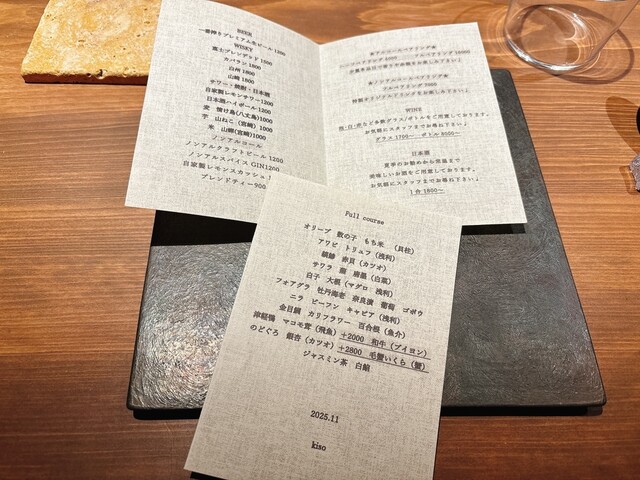 BEER
一番搾りプレミアム生ビール 1200
WISKY
富士ブレンデッド 1500
カバラン 1800
白州 1800
山崎 1800
サワー・焼酎・日本酒
自家製レモンサワー1200
日本酒ハイボール 1200
麦 情け島(八丈島)1000
芋 山ねこ(宮崎)1000
米 山翡(宮崎)1000
ノンアルコール
ノンアルクラフトビール 1200
ノンアルスパイス GIN1200
自家製レモンスカッシュ 1
ブレンドティー900
WINE
泡・白・赤など多数グラス/ボトルを用意しております。
お気軽にスタッフまでお尋ね下さい♩
グラス 1700〜 ボトル 8000〜
日本酒
夏季のお勧めから常温まで
美味しいお酒をご用意しております。
お気軽にスタッフまでお尋ね下さい♩
1合 1800〜
Full course
オリーブ 数の子 もち米 (貝柱)
アワビ トリュフ (浅利)
縞鯵 赤貝 (カツオ)
サワラ 蕪 唐墨 (白菜)
白子 大根 (マグロ 浅利)
フォアグラ 牡丹海老 奈良漬 葡萄 ゴボウ
ニラ ビーフン キャビア (浅利)
金目鯛 カリフラワー 百合根 (魚介)
津軽鴨 マコモ茸 (飛魚) +2000 和牛 (ブイヨン)
のどぐろ 銀杏 (カツオ) +2800 毛蟹いくら (蟹)
ジャスミン茶 白餡
2025.11
kiso